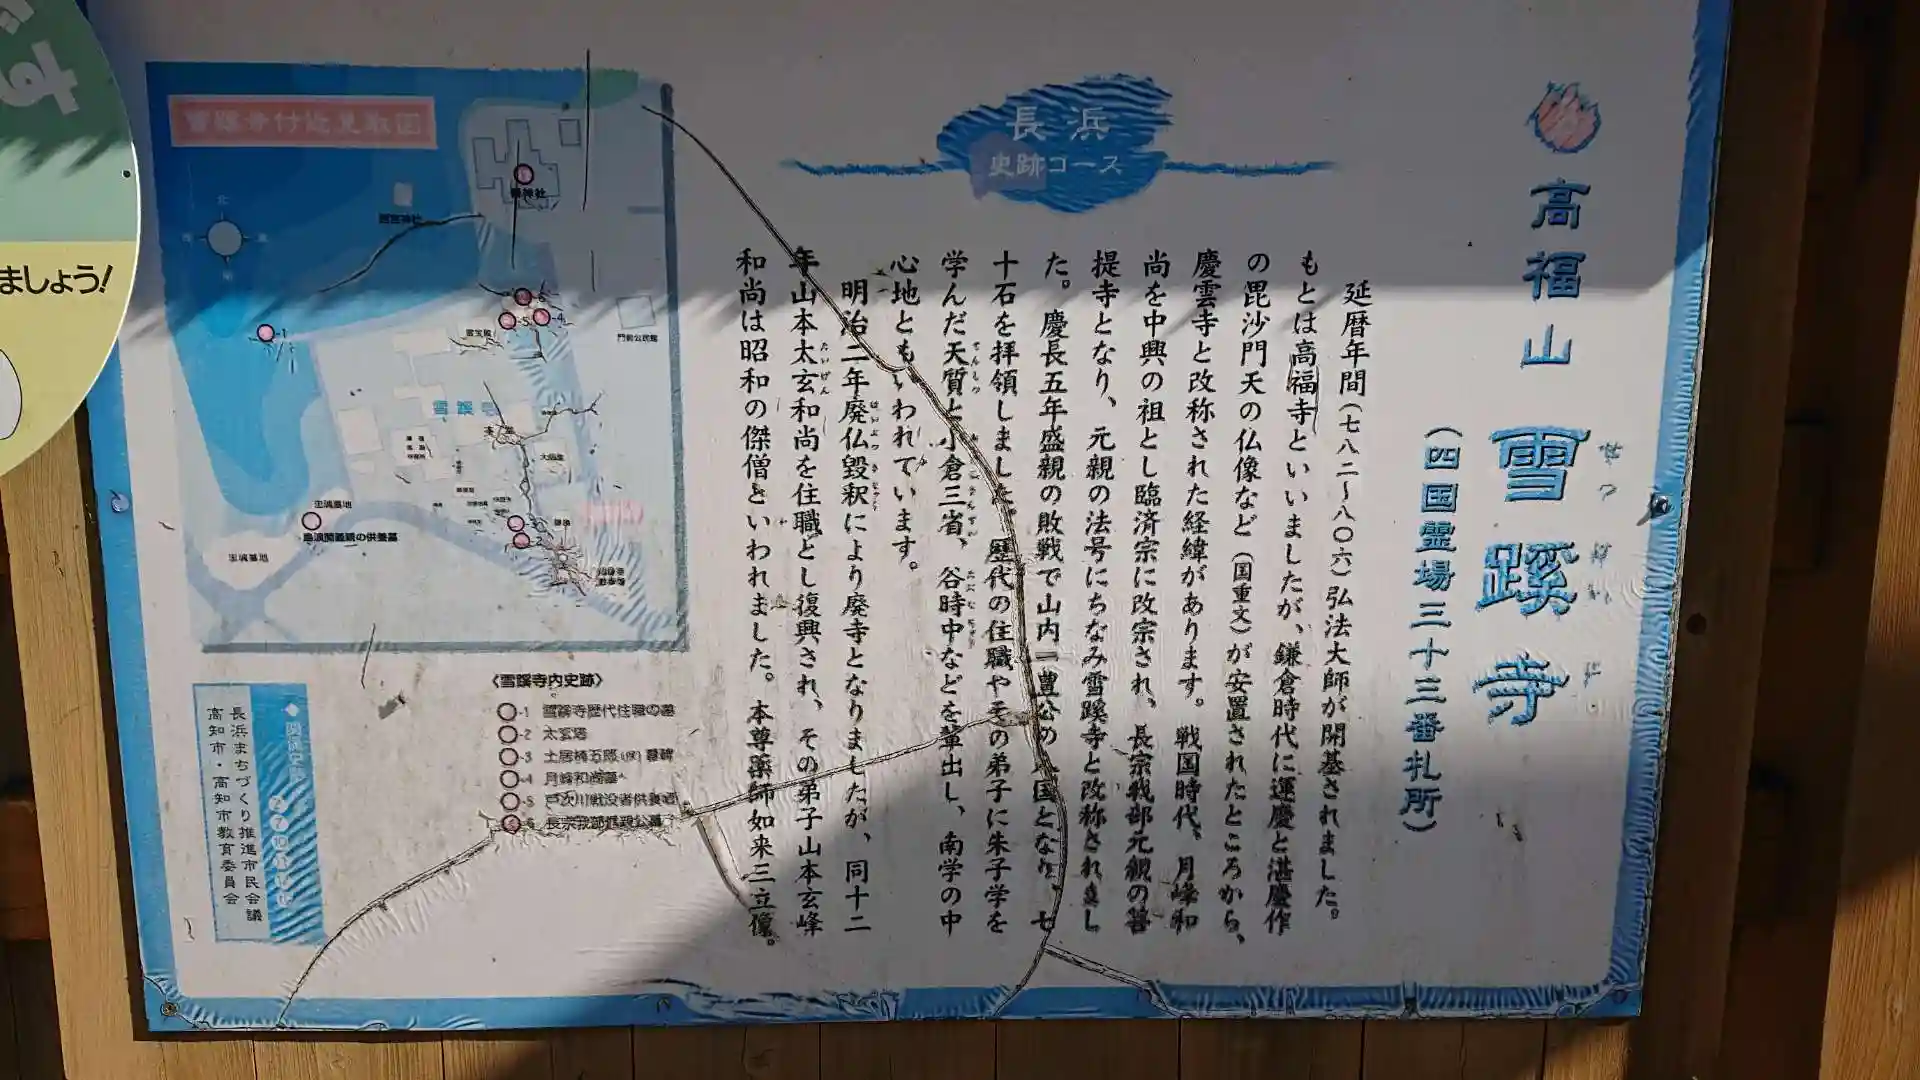 長浜
史跡コース
高福山
雪蹊寺
(四国霊場三十三番札所)
延暦年間(七八二〜八〇六)弘法大師が開基されました。
もとは高福寺といいましたが、鎌倉時代に運慶と湛慶作
の毘沙門天の仏像など(国重文)が安置されたところから、
慶雲寺と改称された経緯があります。戦国時代、月峰和
尚を中興の祖とし臨済宗に改宗され、長宗我部元親の菩
提寺となり、元親の法号にちなみ雪蹊寺と改称されまし
た。慶長五年盛親の敗戦で山内一豊公の入国となり、七
十石を拝領しました。歴代の住職やその弟子に朱子学を
学んだ天質と小倉三省、谷時中などを輩出し、南学の中
心地ともいわれています。
明治二年廃仏毀釈により廃寺となりましたが、同十二
年山本太玄和尚を住職とし復興され、その弟子山本玄峰
和尚は昭和の傑僧といわれました。本尊薬師如来三立像。
雪蹊寺付近見取図
雪蹊寺
本堂
門前公民館
忠魂墓地
島浪間義親の供養墓
忠魂墓地
〈雪蹊寺内史跡〉
-1 雪蹊寺歴代住職の墓
-2 太玄塔
-4 月峰和尚墓
-5 戸次川戦没者供養碑
-6 長宗我部信親公墓
長浜まちづくり推進市民会議
高知市・高知市教育委員会
です
ましょう!